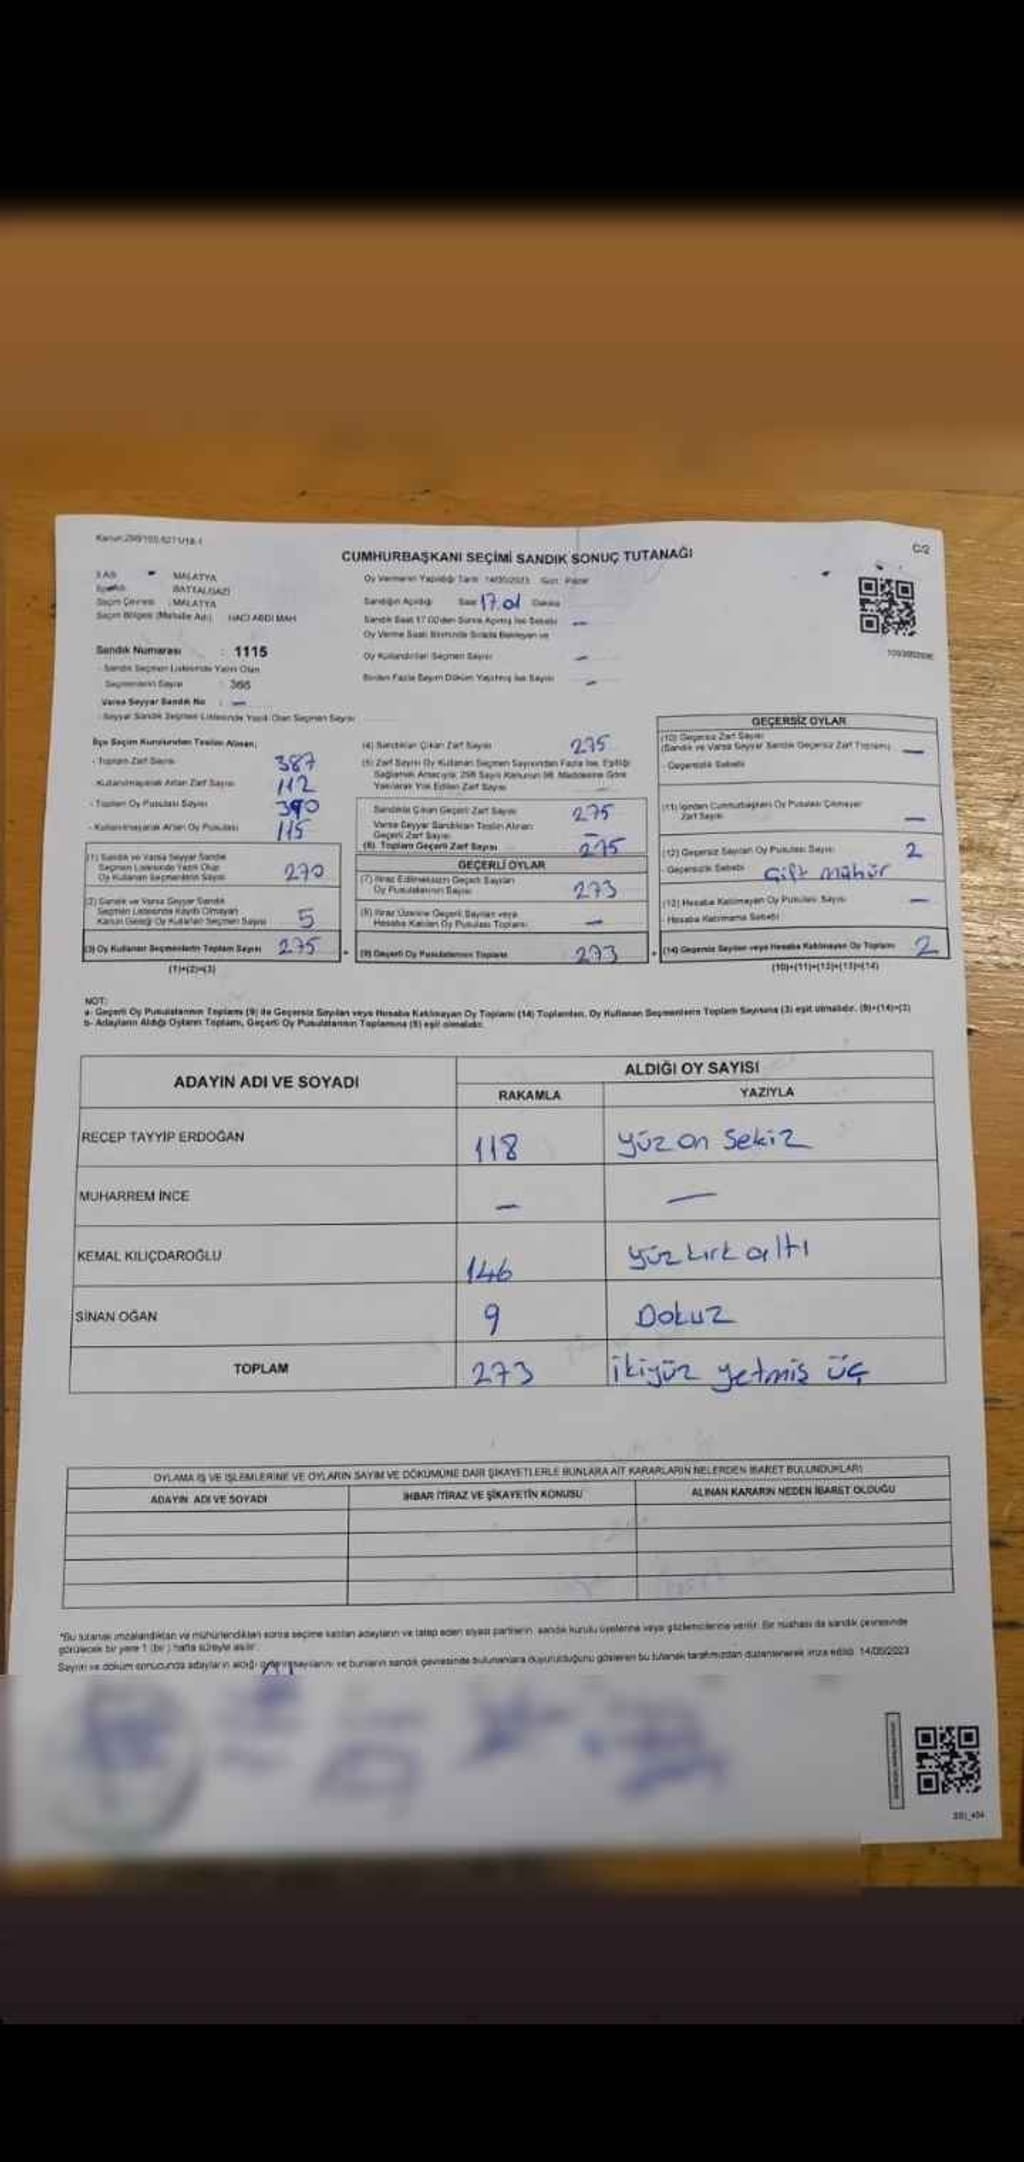 CUMHURBAŞKANI SEÇİMİ SANDIK SONUÇ TUTANAĞI
C/2
MALATYA
BATTALGAZİ
Seçim Çevresi : MALATYA
Seçim Bölgesi (Mahalle Adı) HACI ABDİ MAH
Oy Vermenin Yapıldığı Tarih 14/05/2023 Gün: Pazar
Sandığın Açıldığı Saat 17.01 Dakika
Sandık Saat 17.00'den Sonra Açılmış İse Sebebi —
Oy Verme Saati Bitiminde Sırada Bekleyen ve
Oy Kullandırılan Seçmen Sayısı —
Birden Fazla Sayım Döküm Yapılmış İse Sayısı —
Sandık Numarası : 1115
Sandık Seçmen Listesinde Yazılı Olan
Seçmenlerin Sayısı : 366
Varsa Seyyar Sandık No : —
Seyyar Sandık Seçmen Listesinde Yazılı Olan Seçmen Sayısı
İlçe Seçim Kurulundan Teslim Alınan;
- Toplam Zarf Sayısı 387
- Kullanılmayarak Artan Zarf Sayısı 112
- Toplam Oy Pusulası Sayısı 390
- Kullanılmayarak Artan Oy Pusulası 115
(1) Sandık ve Varsa Seyyar Sandık
Seçmen Listesinde Yazılı Olup
Oy Kullanan Seçmenlerin Sayısı 270
(2) Sandık ve Varsa Seyyar Sandık
Seçmen Listesinde Kayıtlı Olmayan
Kanun Gereği Oy Kullanan Seçmen Sayısı 5
(3) Oy Kullanan Seçmenlerin Toplam Sayısı 275
(1)+(2)=(3)
(4) Sandıktan Çıkan Zarf Sayısı 275
(5) Zarf Sayısı Oy Kullanan Seçmen Sayısından Fazla İse, Eşitliği
Sağlamak Amacıyla; 298 Sayılı Kanunun 98. Maddesine Göre
Yakılarak Yok Edilen Zarf Sayısı —
Sandıkta Çıkan Geçerli Zarf Sayısı 275
Varsa Seyyar Sandıktan Teslim Alınan
Geçerli Zarf Sayısı —
(6) Toplam Geçerli Zarf Sayısı 275
GEÇERLİ OYLAR
(7) İtiraz Edilmeksizin Geçerli Sayılan
Oy Pusulasının Sayısı 273
(8) İtiraz Üzerine Geçerli Sayılan veya
Hesaba Katılan Oy Pusulası Toplamı —
(9) Geçerli Oy Pusulalarının Toplamı 273
GEÇERSİZ OYLAR
(10) Geçersiz Zarf Sayısı
(Sandık ve Varsa Seyyar Sandık Geçersiz Zarf Toplamı) —
- Geçersizlik Sebebi
(11) İçinden Cumhurbaşkanı Oy Pusulası Çıkmayan
Zarf Sayısı —
(12) Geçersiz Sayılan Oy Pusulası Sayısı 2
- Geçersizlik Sebebi Çift mühür
(13) Hesaba Katılmayan Oy Pusulası Sayısı —
- Hesaba Katılmama Sebebi
(14) Geçersiz Sayılan veya Hesaba Katılmayan Oy Toplamı 2
(10)+(11)+(12)+(13)=(14)
NOT:
a- Geçerli Oy Pusulalarının Toplamı (9) ile Geçersiz Sayılan veya Hesaba Katılmayan Oy Toplamı (14) Toplamları, Oy Kullanan Seçmenlerin Toplam Sayısına (3) eşit olmalıdır. (9)+(14)=(3)
b- Adayların Aldığı Oyların Toplamı, Geçerli Oy Pusulalarının Toplamına (9) eşit olmalıdır.
ADAYIN ADI VE SOYADI
ALDIĞI OY SAYISI
RAKAMLA
YAZIYLA
RECEP TAYYİP ERDOĞAN 118 yüz on sekiz
MUHARREM İNCE — —
KEMAL KILIÇDAROĞLU 146 yüz kırk altı
SİNAN OĞAN 9 Dokuz
TOPLAM 273 ikiyüz yetmiş üç
OYLAMA İŞ VE İŞLEMLERİNE VE OYLARIN SAYIM VE DÖKÜMÜNE DAİR ŞİKAYETLERLE BUNLARA AİT KARARLARIN NELERDEN İBARET BULUNDUKLARI
ADAYIN ADI VE SOYADI
İHBAR İTİRAZ VE ŞİKAYETİN KONUSU
ALINAN KARARIN NEDEN İBARET OLDUĞU
*Bu tutanak imzalandıktan ve mühürlendikten sonra seçime katılan adayların ve talep eden siyasi partilerin, sandık kurulu üyelerine veya gözlemcilerine verilir. Bir nüshası da sandık çevresinde
görülecek bir yere 1 (bir) hafta süreyle asılır.
Sayım ve döküm sonucunda adayların aldığı ve bunların sandık çevresinde bulunanlara duyurulduğunu gösteren bu tutanak tarafımızdan düzenlenerek imza edildi. 14/05/2023